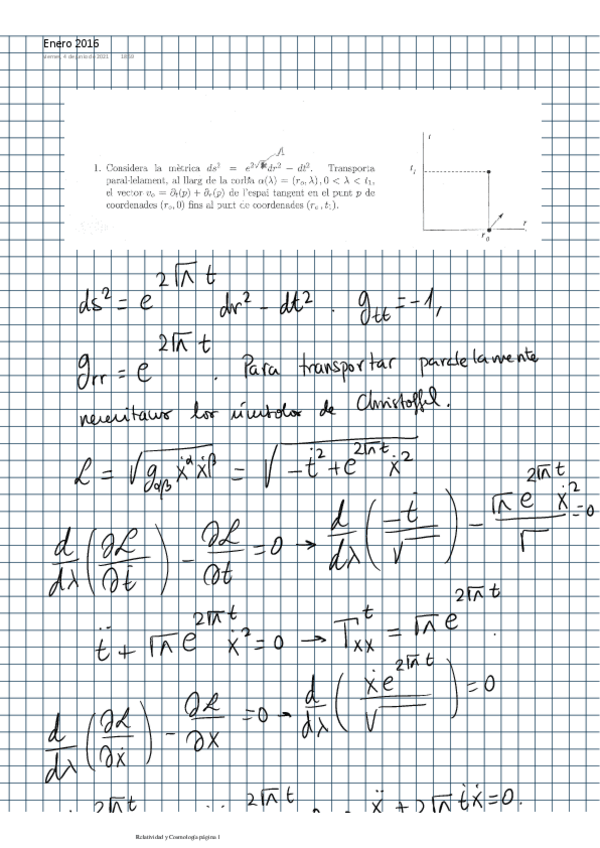 Enero 2016
viernes, 4 de junio de 2021 18:38
Λ
1. Considera la mètrica ds² = e^{2√Λt}dr² − dt². Transporta
paral·lelament, al llarg de la corba α(λ) = (r₀, λ), 0 < λ < t₁,
el vector v₀ = ∂t(p) + ∂r(p) de l'espai tangent en el punt p de
coordenades (r₀, 0) fins al punt de coordenades (r₀, t₁).
t
t₁
r₀ r
ds² = e^{2√Λ t} dr² − dt². g_tt = −1,
g_rr = e^{2√Λ t}. Para transportar paralelamente
necesitamos los símbolos de Christoffel.
L = √(g_αβ ẋ^α ẋ^β) = √(−ṫ² + e^{2√Λ t} ẋ²)
d/dλ (∂L/∂ṫ) − ∂L/∂t = 0 → d/dλ (−ṫ/√) − √Λ e^{2√Λ t} ẋ²/√ = 0
ẗ + √Λ e^{2√Λ t} ẋ² = 0 → Γ^t_xx = √Λ e^{2√Λ t}.
d/dλ (∂L/∂ẋ) − ∂L/∂x = 0 → d/dλ (ẋ e^{2√Λ t}/√) = 0
2√Λ t 2√Λ t ẍ + 2√Λ ṫẋ = 0.
Relatividad y Cosmología página 1